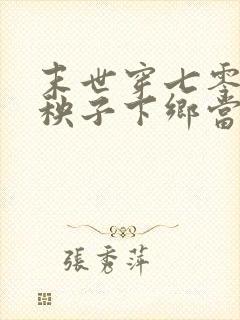 末世穿七零
秧子下鄉當
張秀萍